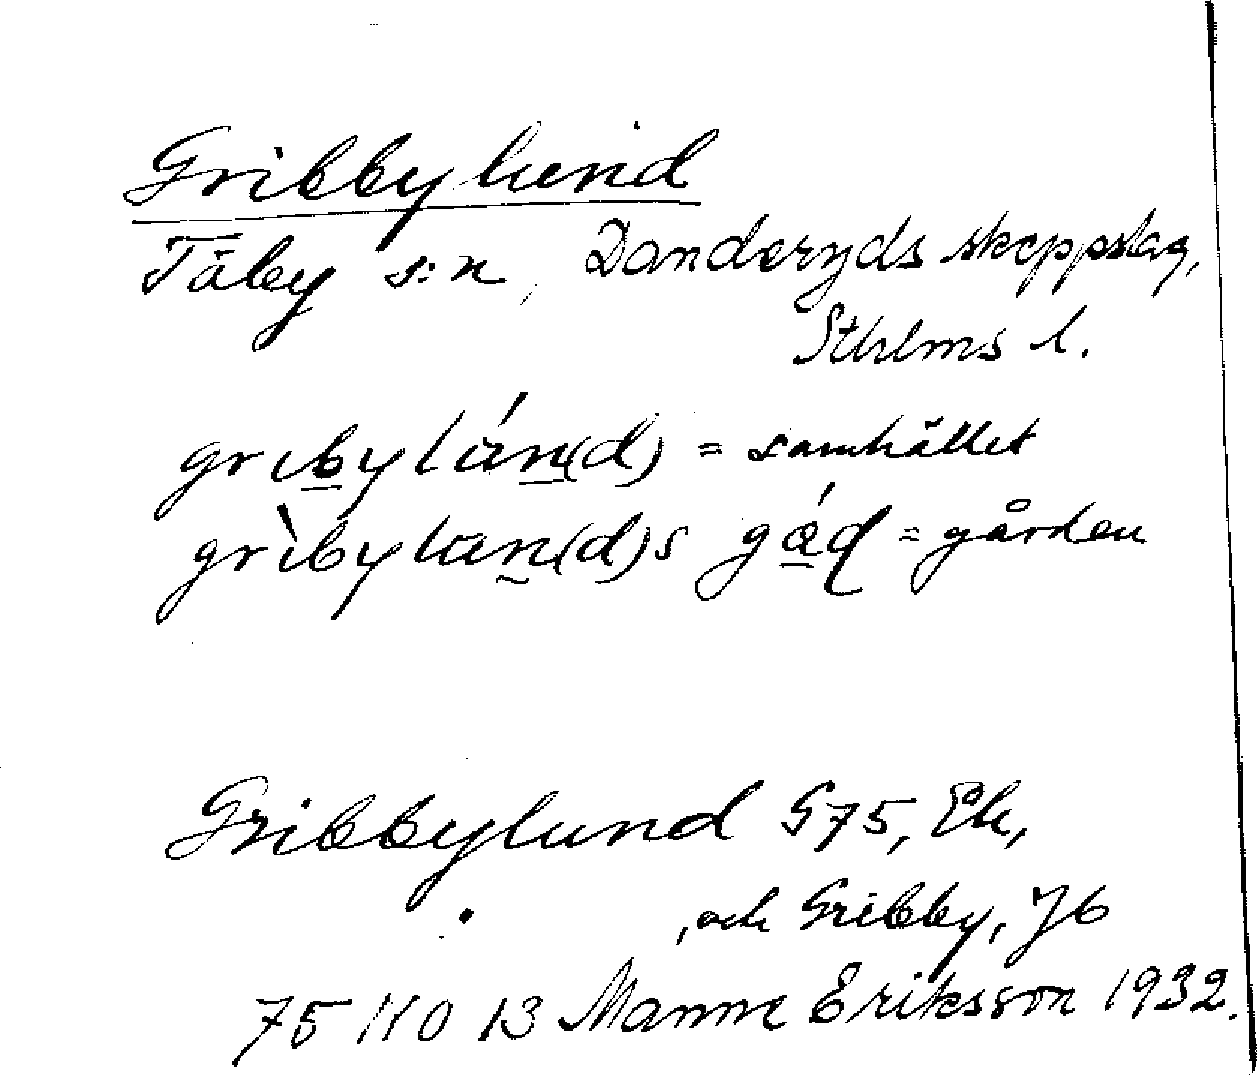 Gribbylund
Täby s:n, Danderyds skeppslag,
Sthlms l.
gribylán(d) = samhället
grìbylan(d)s gáɖ = gården
Gribbylund G75, Ek,
, och Gribby, Jb
75 I10 13 Manne Eriksson 1932.